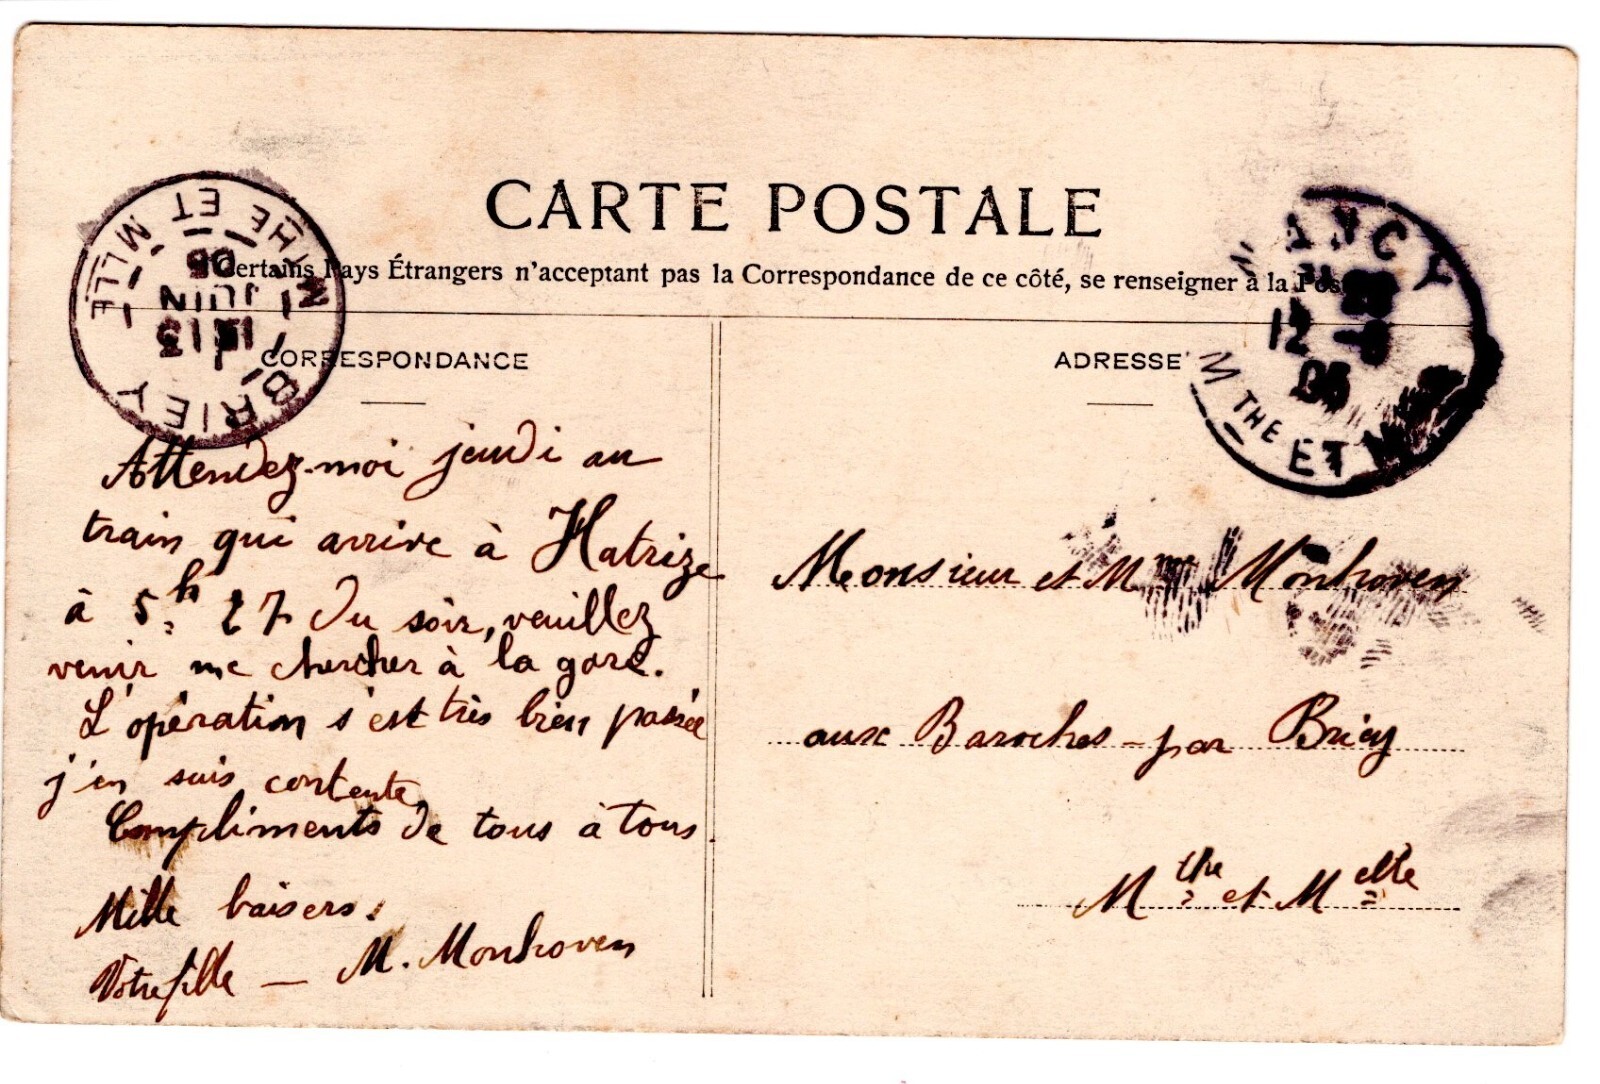 CARTE POSTALE
Certains Pays Étrangers n'acceptant pas la Correspondance de ce côté, se renseigner à la Pos
CORRESPONDANCE
ADRESSE
BRIEY
MTHE ET MLLE
13
JUIN
06
NANCY
12 -6
06
MTHE ET M
Attendez-moi jeudi au
train qui arrive à Hatrize
à 5h 27 du soir, veuillez
venir me chercher à la gare.
L'opération s'est très bien passée
j'en suis contente,
Compliments de tous à tous.
Mille baisers.
Votre fille — M. Monhoven
Monsieur et Mme Monhoven
aux Baroches - par Briey
Mthe et Melle